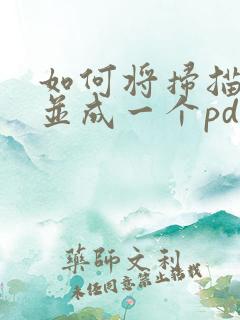 如何将掃描
並成一个pd
藥師文利
未经同意禁止搭载